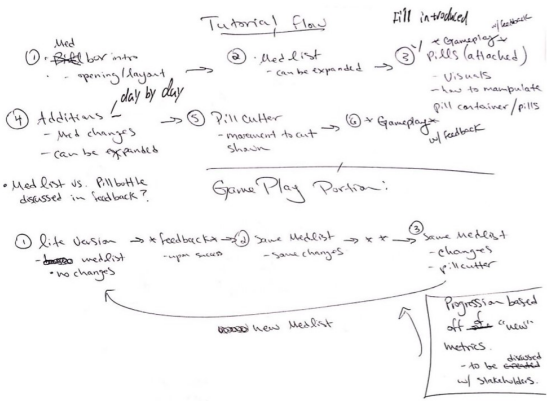 Tutorial Flow
Med
① • bar intro
- opening/layout
② • Med list
- can be expanded
Fill introduced
w/ feedback
* Gameplay *
③ Pills (attached)
- Visuals
- how to manipulate
pill container/pills
④ Additions - day by day
- Med changes
- can be expanded
⑤ Pill Cutter
- movement to cut
shown
⑥ * Gameplay *
w/ feedback
• Med list vs. Pill bottle
discussed in feedback?
Game Play Portion:
① lite version
- medlist
• no changes
* feedback *
- upon success
② same Medlist
- same changes
* *
③ same Medlist
- changes
- pillcutter
new Medlist
Progression based
off of "new"
metrics.
- to be discussed
w/ stakeholders.